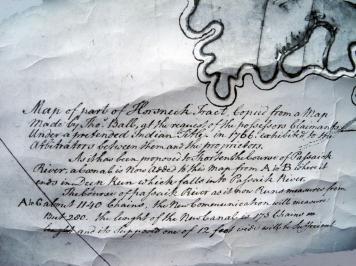 Map of part of Horsneck Tract, Copied from a Map
Made by Thos. Ball, at the request of the possessors Claimants
Under a pretended Indian Title in 1761. exhibited to the
Arbitrators between them and the proprietors.
As it has been proposed to Shorten the Course of Passaick
River, a Canal is now added to this map from A to B where it
ends in Deep Run which falls into Passaick River.
The Course of Passaick River as it now Runs measures from
A to B about 1140 Chains, the New Communication will measure
But 200. the lenght of the New Canal is 175 Chains in
lenght and its supposd one of 12 feet wide will be sufficient